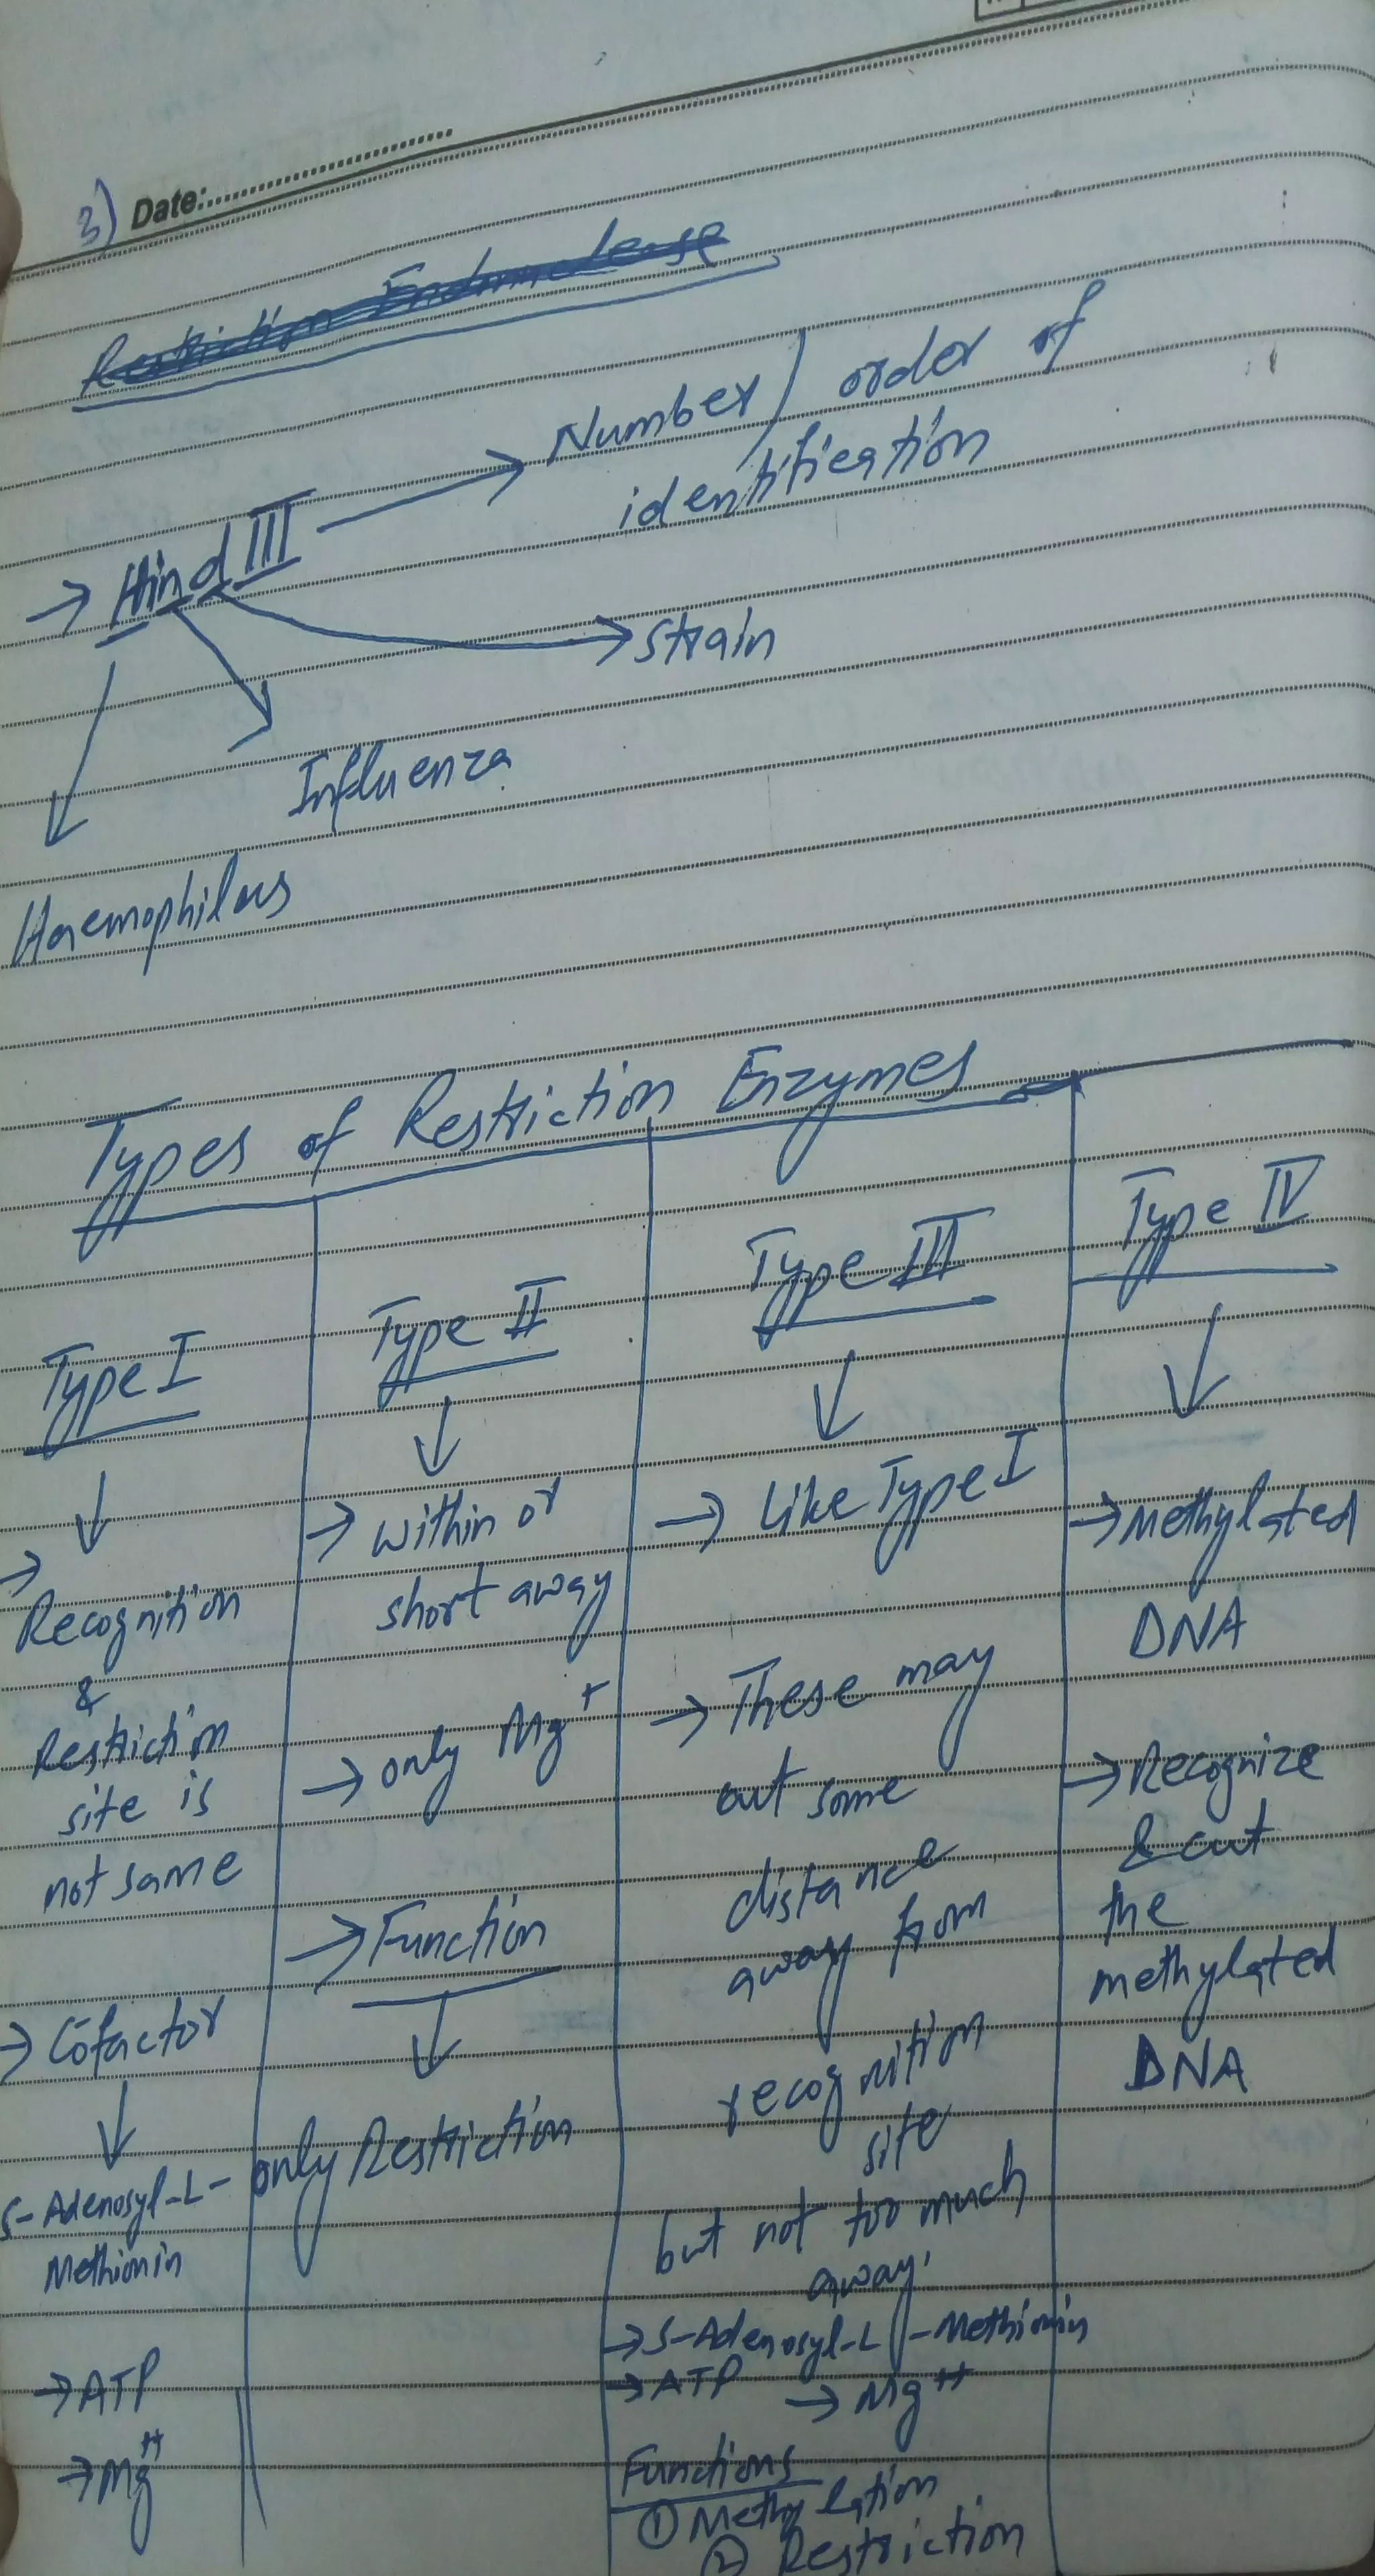 3) Date:
Restriction Endonuclease
Number/ order of
identification
→ Hind III
Strain
Influenza
Haemophilous
Types of Restriction Enzymes
Type I
→
Recognition
&
Restriction
site is
not same
→ Cofactor
S-Adenosyl-L-
Methionin
→ ATP
→ Mg++
Type II
→ within or
short away
→ only Mg+
→ Function
only Restriction
Type III
→ Like Type I
→ These may
cut some
distance
away from
recognition
site
but not too much
away.
→ S-Adenosyl-L-Methionin
→ ATP → Mg++
Functions
① Methylation
② Restriction
Type IV
→ Methylated
DNA
→ Recognize
& cut
the
methylated
DNA